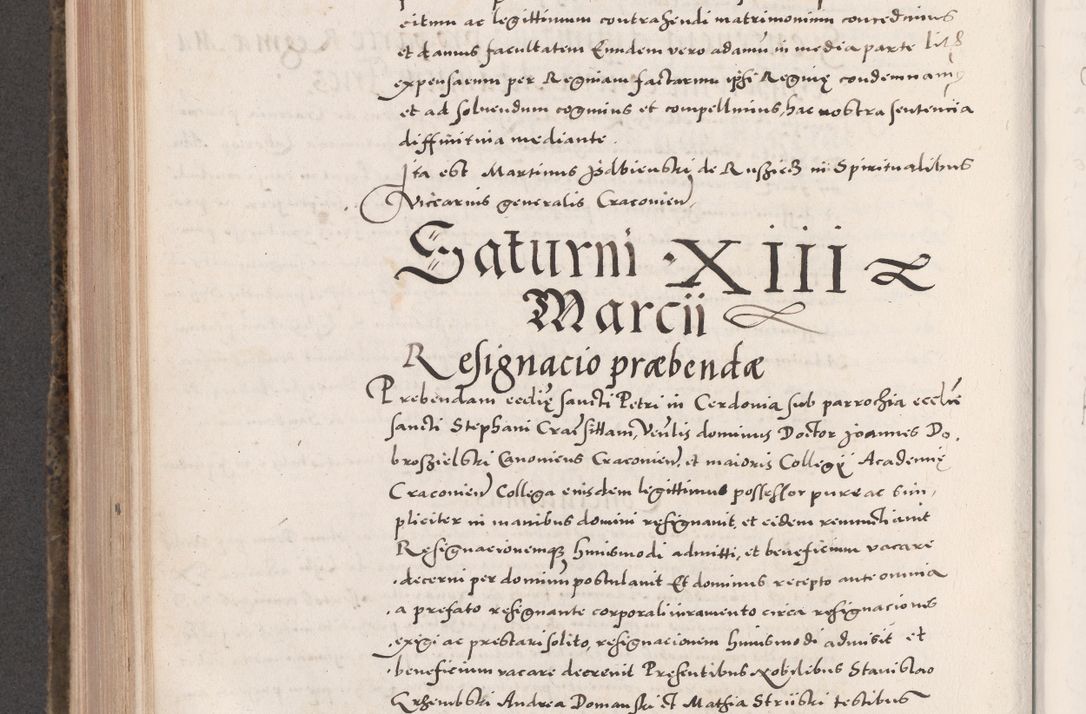 eitum ac legittimum contrahendi matrimonium concedimus
et damus facultatem Eundem vero adamū in media parte litis
expensarum per Reginam factarum ipsi Reginę condemnam9
et ad soluendum cogimus et compellimus, hac nostra sententia
diffinitiua mediante.
Ita est Martinus Izdbienski de Ruszcz in Spiritualibus
Vicearius generalis Cracouien
Saturni · XIII
Marcii
Resignacio præbendæ
Prebendam ecclię sancti Petri in Cerdonia sub parrochia ecclie
sancti Stephani Crac sittam, Venlis dominus Doctor Joannes Do,
broszielski Canonicus Cracouien, et maioris Collegy Academię
Cracouien Collega eiusdem legittimus possessor pure ac sim,
pliciter in manibus domini resignauit, et eidem renunctiauit
Resignacionemq huiusmodi admitti, et beneficium vacare
decerni per dominum postulauit Et dominus recepto ante omnia
a prefato resignante corporali iuramento circa resignaciones
exigi ac prestari solito, resignacionem huiusmodi admisit et
beneficium vacare decreuit Presentibus nobilibus Stanislao
Krzembski Andrea Domanski et Mathia Striiski testibus